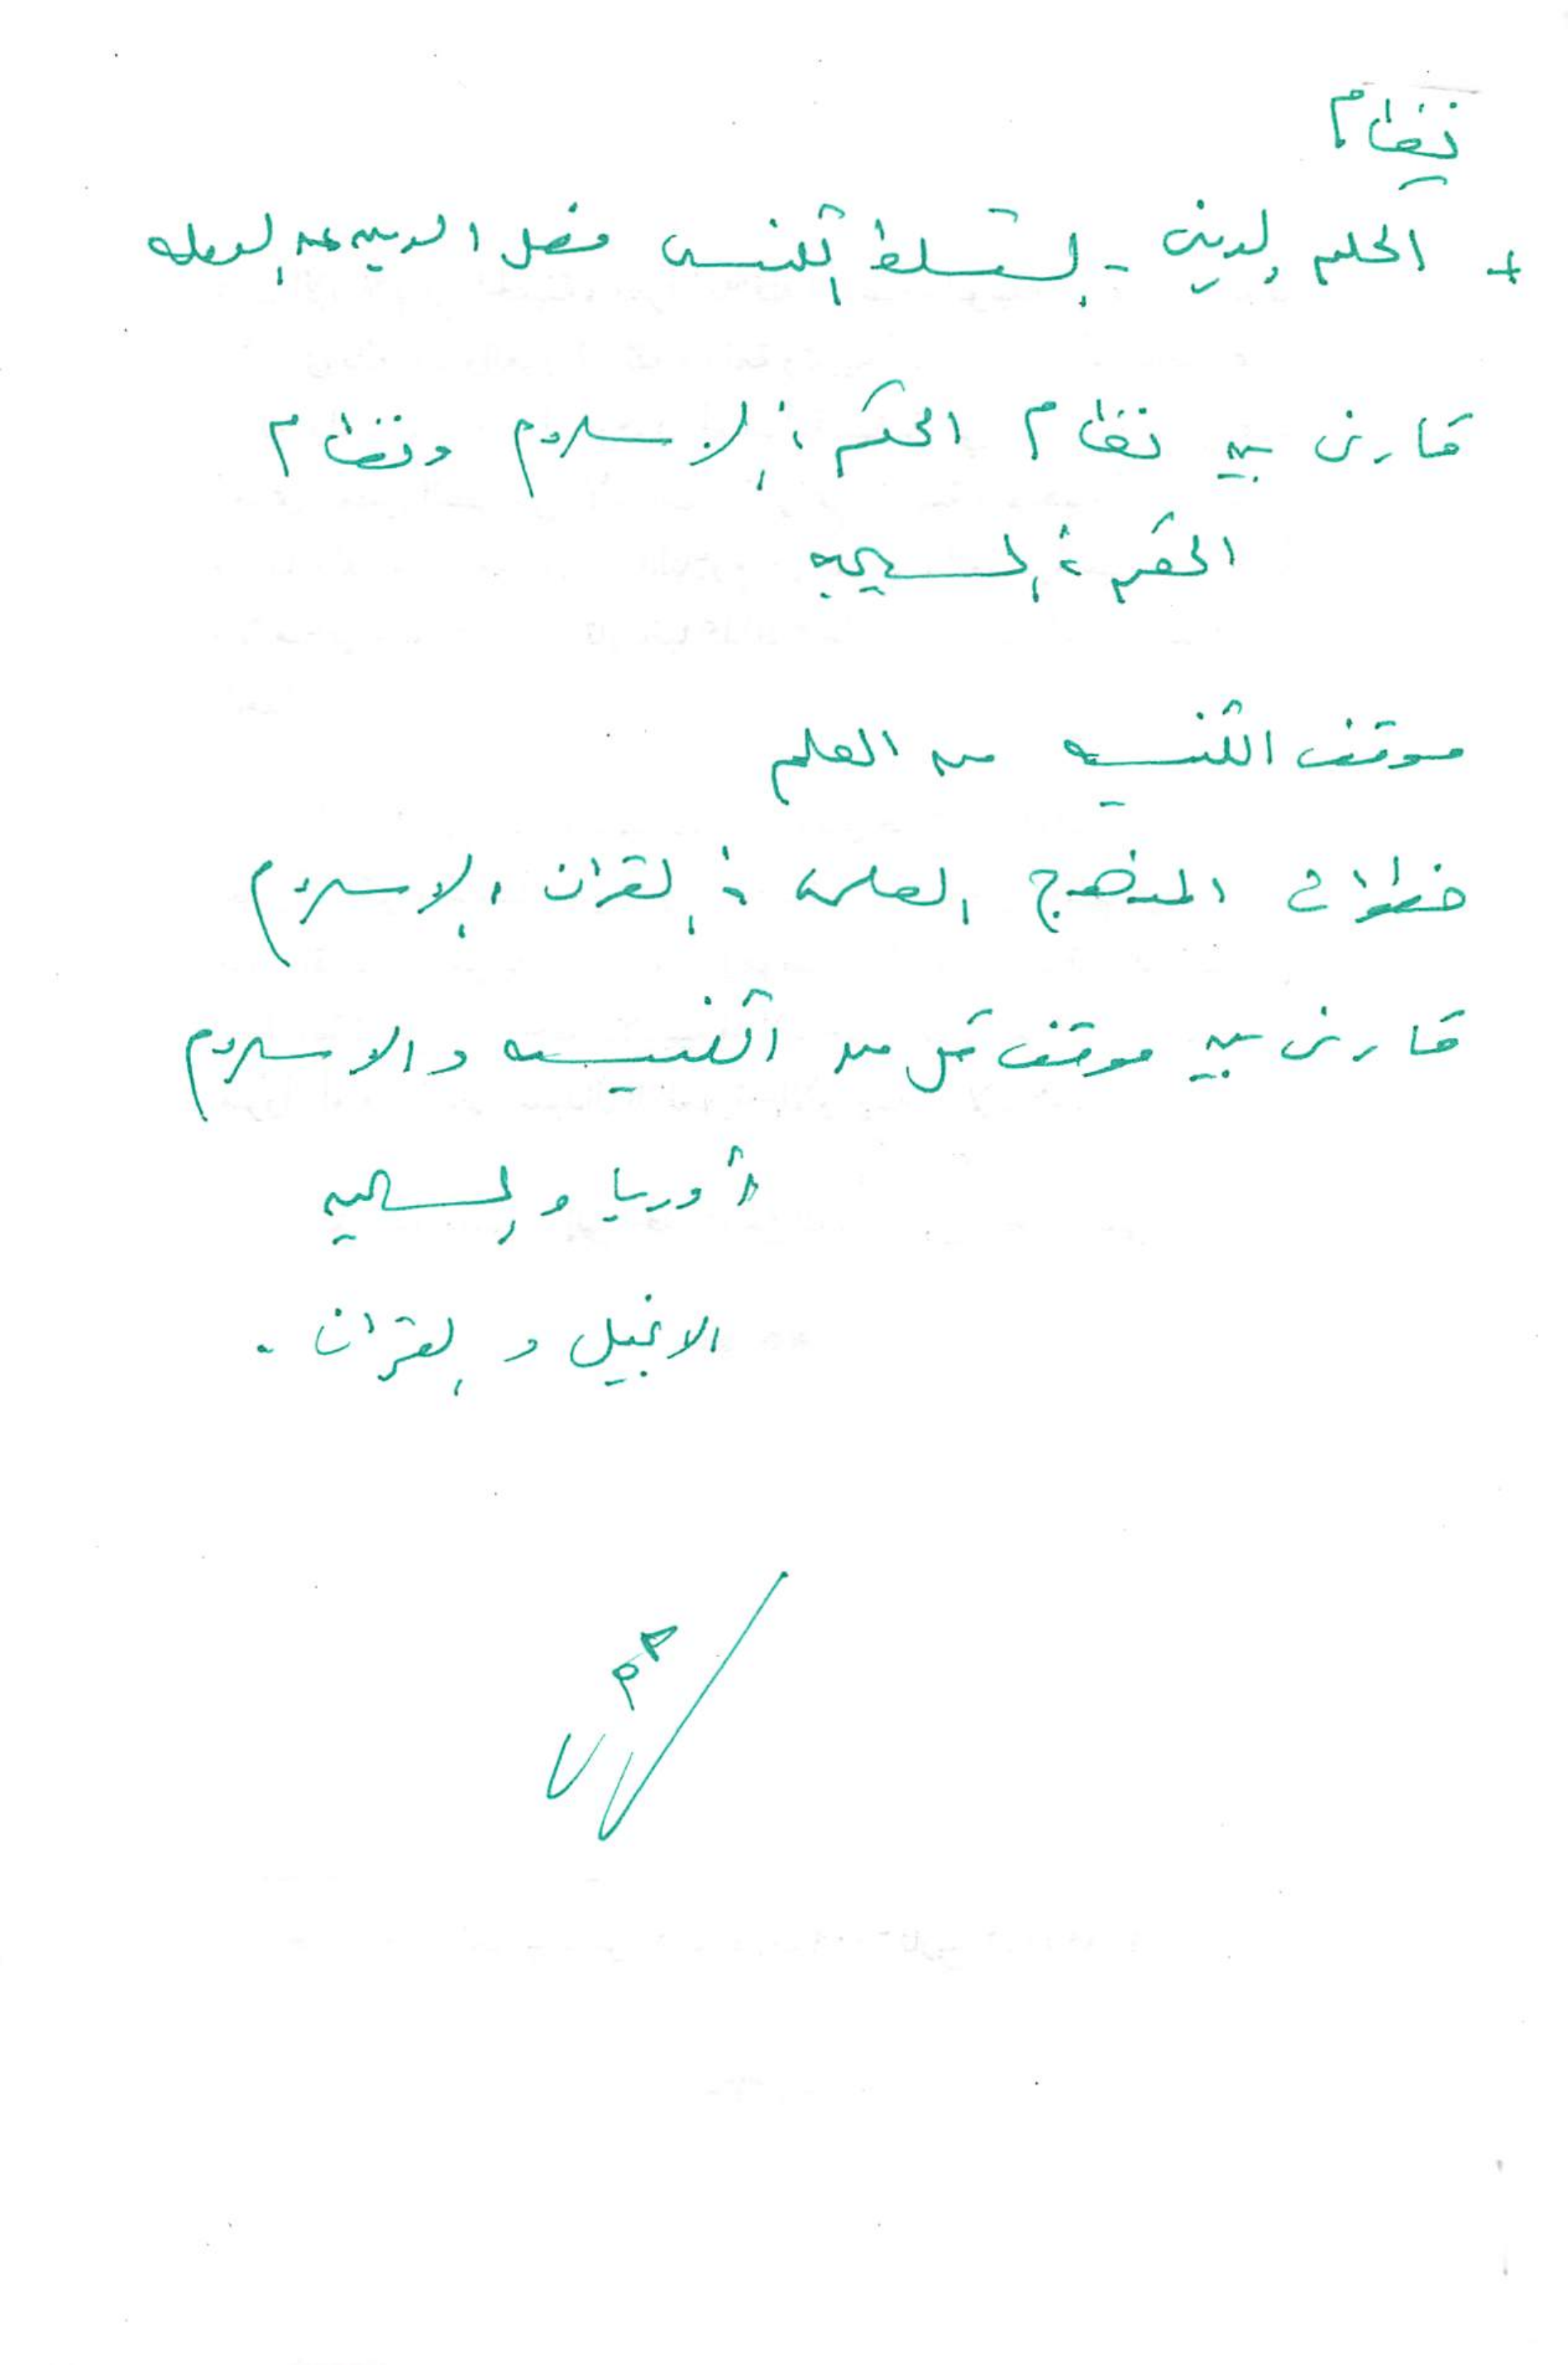 نظام
+ الحكم الديني - التسلط الكنسي فصل الدين عن الدولة
قارن بين نظام الحكم في الإسلام ونظام
الحكم في المسيحيه
موقف الكنيسه من العلم
خطوات المنهج العلمي في القران والاسلام
قارن بين موقف كل من الكنيسه والاسلام
أوربا والمسيحيه
الانجيل والقران .